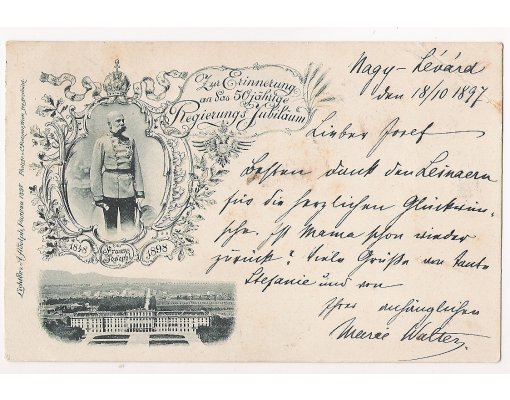 Zur Erinnerung
an das 50 jährige
Regierungs Jubiläum
1848 1898
Franz
Joseph
Nagy-Lévárd
den 18/10 1897
Lieber Josef
Besten Dank den
für die herzlichen Glückwün-
sche. Ist Mama schon wieder
zurück? Viele Grüße von Tante
Stefanie und von
Ihrer anhänglichen
Marie Walter